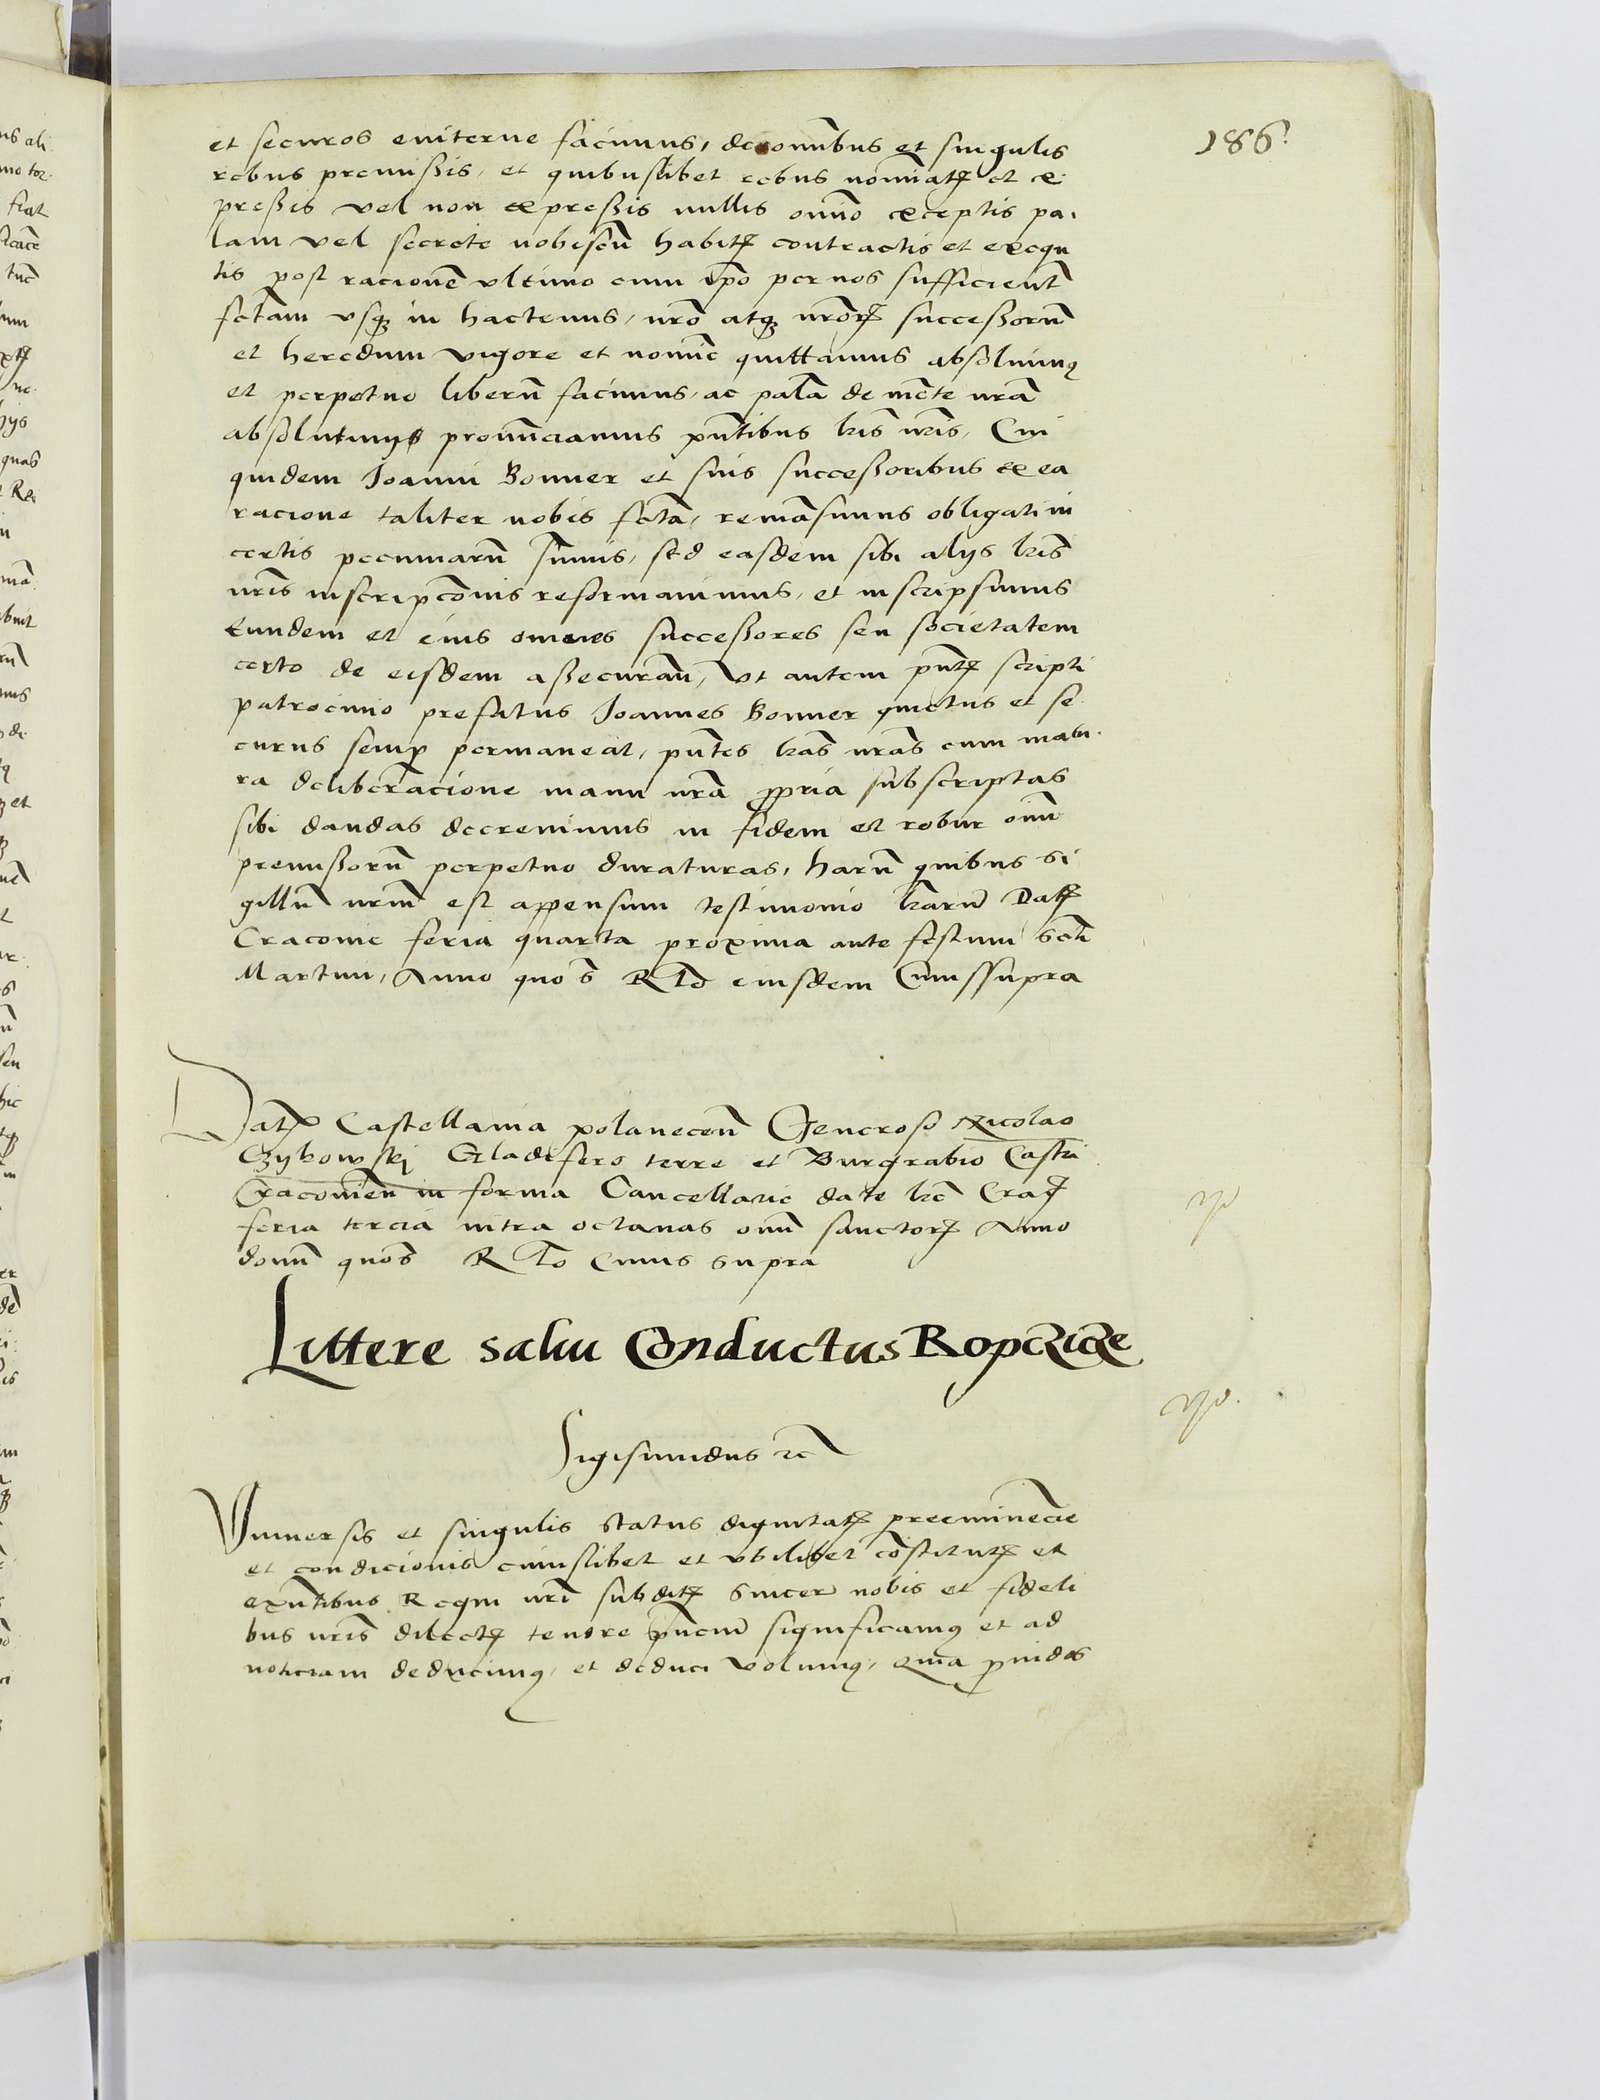 186.
et securos eviterne facimus, de omnibus et singulis
rebus premissis, et quibuslibet rebus nominatis et ex
pressis vel non expressis nullis omnino exceptis pa,
lam vel secrete nobiscū habitis contractis et exequ
tis post racionē ultimo cum ipso per nos sufficient
fctam usqz in hactenus, nro atqz nrorz successorum
et heredum vigore et nomine quittamus absolvimus
et perpetuo liberū facimus, ac palā de mēte nrā
absolutum pronunciamus pntibus lris nris, Cui
quidem Joanni Bonner et suis successoribus ex ea
racione taliter nobis fcta, remāsimus obligati in
certis pecuniarū sumis, sed easdem sibi alijs lris
nris inscripconis reformavimus, et inscripsimus
Eundem et eius omnes successores seu societatem
certo de eisdem assecuran, Ut autem pntis scripti
patrocinio prefatus Joannes Bonner quietus et se
curus semp permaneat, pntes lras nras cum matu
ra deliberacione manu nrā ppria subscriptas
sibi dandas decrevimus in fidem et robur oim
premissorū perpetuo duraturas, harū quibus si
gillū nrm est appensum testimonio lrarum Datz
Cracovie feria quarta proxima ante festum scti
Martini, Anno quo s R Rlo eiusdem Cuius supra
Datz Castellania polanecen Generoso Nicolao
Czykowskj Gladifero terre et Burgrabio Castri
Cracovien in forma Cancellarie date lre Crac
feria tercia intra octavas oim sanctorz Anno
domi quo s R Rlo Cuius supra
Littere salvi Conductus Ropczicze
Sigismundus rc
Universis et singulis status dignitatis preeminēcie
et condicionis cuiuslibet et ubilibet cōstitutis et
exntibus Regni nri subditis Sincere nobis et fideli
bus nris dilectis tenore pncium significamus et ad
noticiam deducimus, et deduci volumus, Quia pvidos